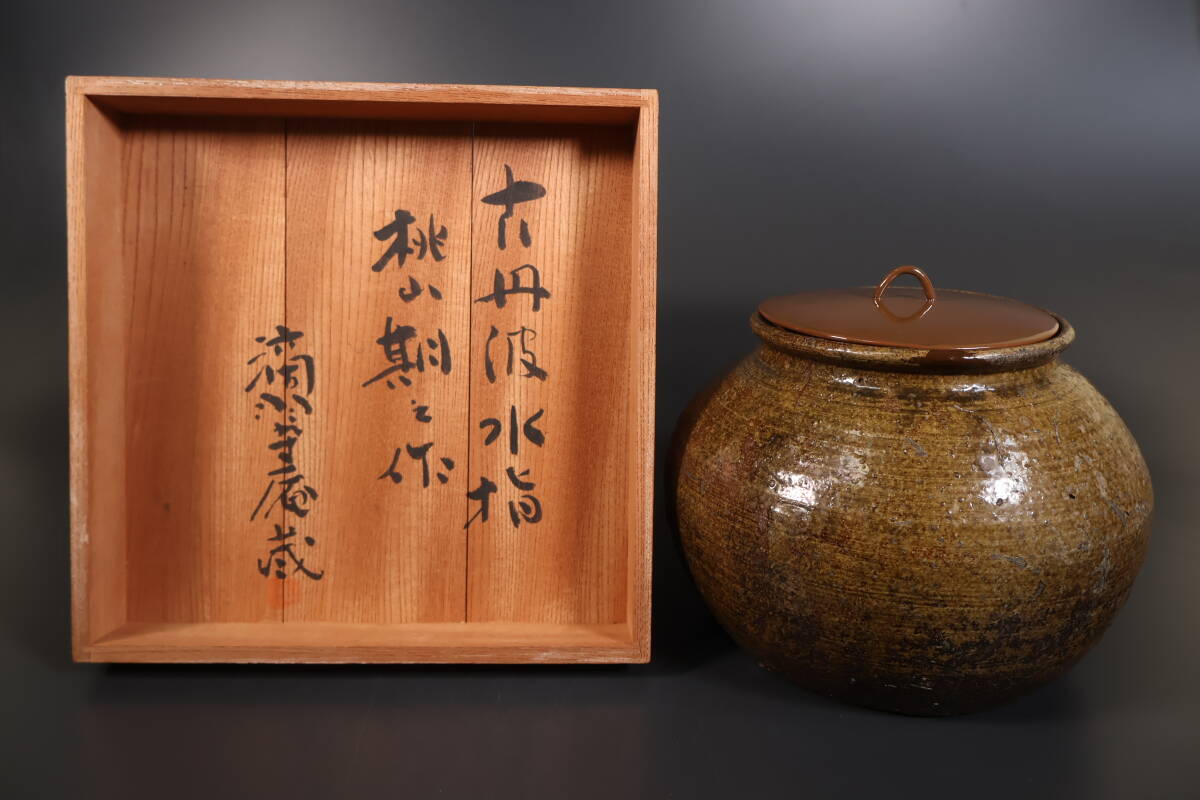 古丹波水指
桃山期之作
滴翠庵蔵